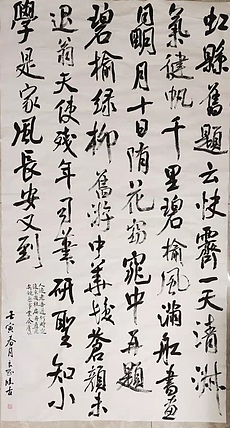 虹縣舊題云快霽一天清淑
氣健帆千里碧榆風滿舡書畫
同明月十日隋花窈窕中再題
碧榆綠柳舊游中華髮蒼顏未
退翁天使殘年司筆研聖知小
學是家風長安又到
壬寅春月